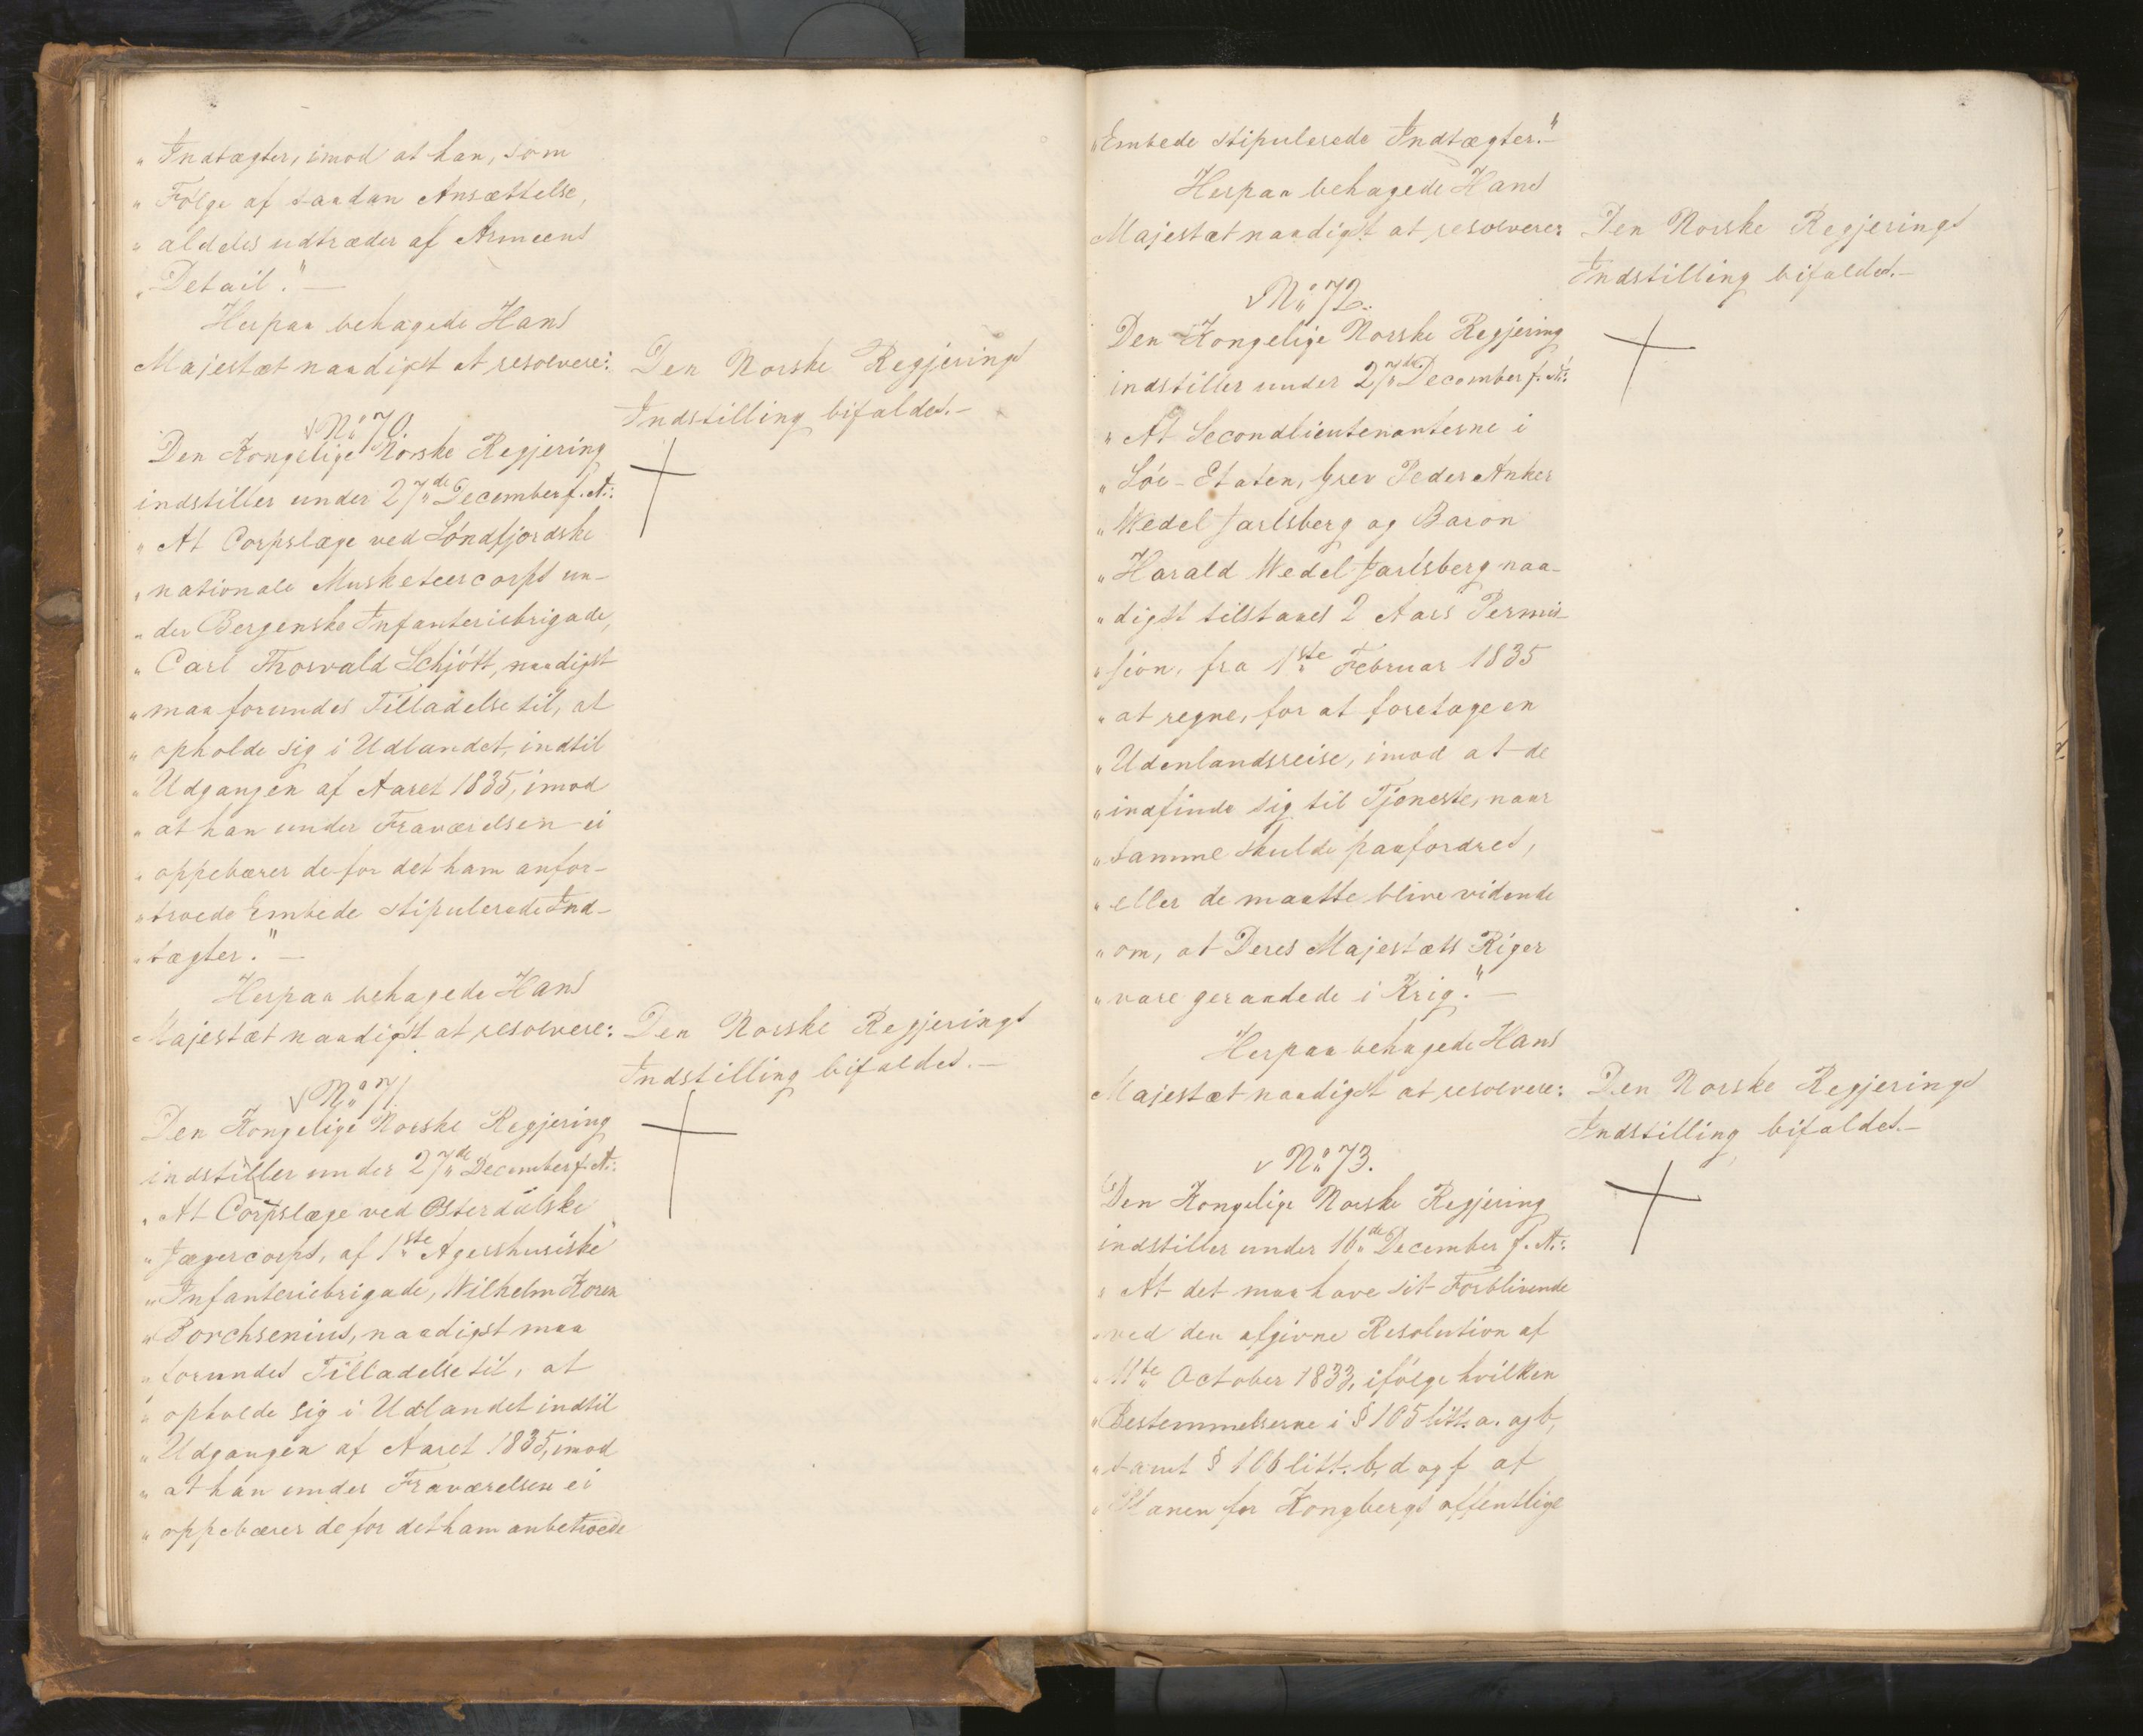 „Indtægter, imod at han, som
„Følge af saadan Ansættelse,
„aldeles udtræder af Armeens
„Detail." —
Herpaa behagede Hans
Majestæt naadigst at resolvere:
Den Norske Regjerings
Indstilling bifaldes. —
No 70.
Den Kongelige Norske Regjering
indstiller under 27de December f. A.:
„At Corpslæge ved Søndfjordske
„nationale Musketeercorps un-
„der Bergenske Infanteriebrigade,
„Carl Thorvald Schjøtt, naadigst
„maa forundes Tilladelse til, at
„opholde sig i Udlandet, indtil
„Udgangen af Aaret 1835, imod
„at han under Fraværelsen ei
„oppebærer de for det ham anfor-
„troede Embede stipulerede Ind-
„tægter." —
Herpaa behagede Hans
Majestæt naadigst at resolvere:
Den Norske Regjerings
Indstilling bifaldes. —
No 71.
Den Kongelige Norske Regjering
indstiller under 27de December f. A.:
„At Corpslæge ved Østerdalske
„Jægercorps, af 1ste Agershusiske
„Infanteriebrigade, Wilhelm Koren
„Borchsenius, naadigst maa
„forundes Tilladelse til, at
„opholde sig i Udlandet indtil
„Udgangen af Aaret 1835, imod
„at han under Fraværelsen ei
„oppebærer de for det ham anbetroede
„Embede stipulerede Indtægter." —
Herpaa behagede Hans
Majestæt naadigst at resolvere:
Den Norske Regjerings
Indstilling bifaldes. —
No 72.
Den Kongelige Norske Regjering
indstiller under 27de December f. A.:
„At Secondlieutenanterne i
„Søe-Etaten, Grev Peder Anker
„Wedel Jarlsberg og Baron
„Harald Wedel Jarlsberg naa-
„digst tilstaaes 2 Aars Permis-
„sion, fra 1ste Februar 1835
„at regne, for at foretage en
„Udenlandsreise, imod at de
„indfinde sig til Tjeneste, naar
„samme skulde paafordres,
„eller de maatte blive vidende
„om, at Deres Majestæts Riger
„vare geraadede i Krig." —
Herpaa behagede Hans
Majestæt naadigst at resolvere:
Den Norske Regjerings
Indstilling bifaldes. —
No 73.
Den Kongelige Norske Regjering
indstiller under 16de December f. A.:
„At det maa have sit Forblivende
„ved den afgivne Resolution af
„11te October 1833, ifølge hvilken
„Bestemmelserne i § 105 litt. a. og b,
„samt § 106 litt. b, d og f af
„Planen for Kongsbergs offentlige